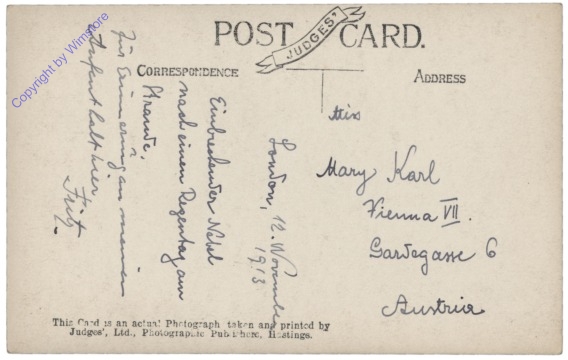 POST CARD.
JUDGES'
CORRESPONDENCE
ADDRESS
London, 12. November
1913
Einbrechender Nebel
nach einem Regentag am
Strande.
Zur Erinnerung an meinen
Aufenthalt hier
Fritz.
Miss
Mary Karl
Vienna VII.
Gardegasse 6
Austria
This Card is an actual Photograph taken and printed by
Judges', Ltd., Photographic Publishers, Hastings.
Copyright by Wimstore